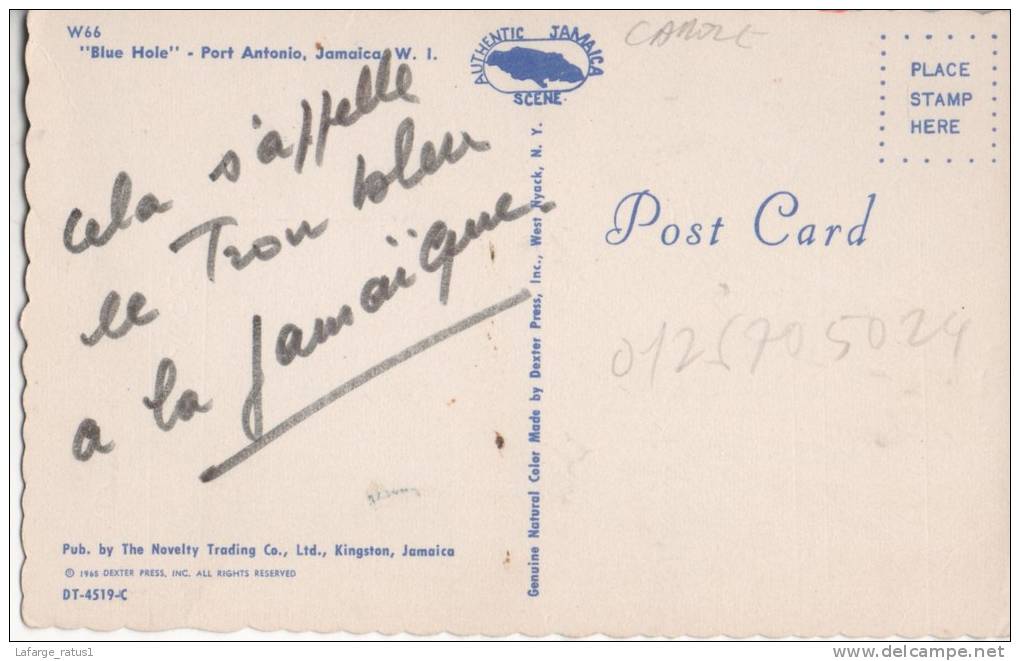 W66
"Blue Hole" - Port Antonio, Jamaica, W. I.
cela s'appelle
le Trou bleu
a la Jamaïque.
Pub. by The Novelty Trading Co., Ltd., Kingston, Jamaica
© 1965 DEXTER PRESS, INC. ALL RIGHTS RESERVED
DT-4519-C
AUTHENTIC JAMAICA
SCENE
Genuine Natural Color Made by Dexter Press, Inc., West Nyack, N. Y.
PLACE
STAMP
HERE
Post Card
0125705024
Lafarge_ratus1
www.delcampe.net